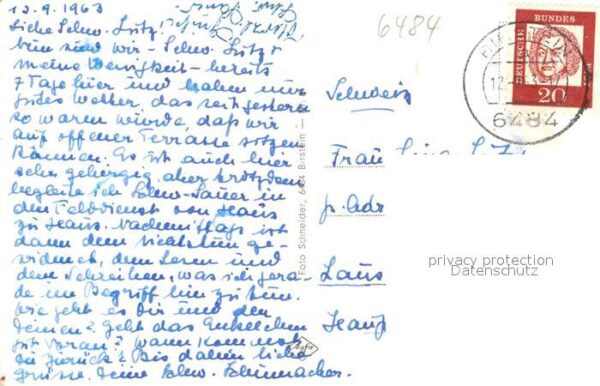 12.9.1963
Liebe Schw. Lutz!
nun sind wir - Schw. Lutz +
meine Wenigkeit - bereits
7 Tage hier und haben nur
gutes Wetter, das seit gestern
so warm wurde, daß wir
auf offener Terrasse sitzen
können. Es ist auch hier
sehr gebirgig, aber trotzdem
begleite ich Schw. Sauer in
den Felddienst von Haus
zu Haus. Nachmittags ist
dann dem Nichtstun ge-
widmet, dem Lesen und
dem Schreiben, was ich gera-
de im Begriff bin zu tun.
Wie geht es Dir und den
Deinen? Geht das Enkelchen
gut voran? Wann kommst
zurück? Bis dahin liebe
Grüsse Deine Schw. Schumacher.
6484
DEUTSCHE BUNDESPOST
20
6484
Schweiz
Frau
p. Adr
Foto Schneider, 6484 Birstein
privacy protection
Datenschutz